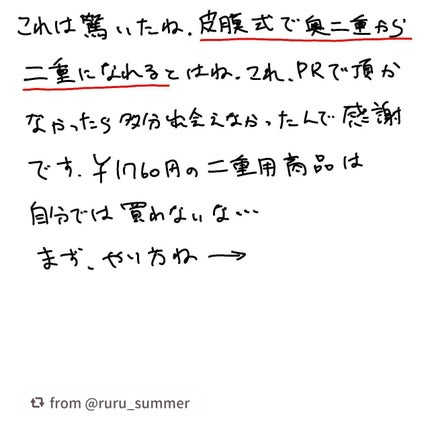 これは驚いたね。皮膜式で奥二重から
二重になれるとはね。これ、PRで頂か
なかったら多分出会えなかったんで感謝
です。¥1760円の二重用商品は
自分では買わないな…
まず、やり方ね→
from @ruru_summer